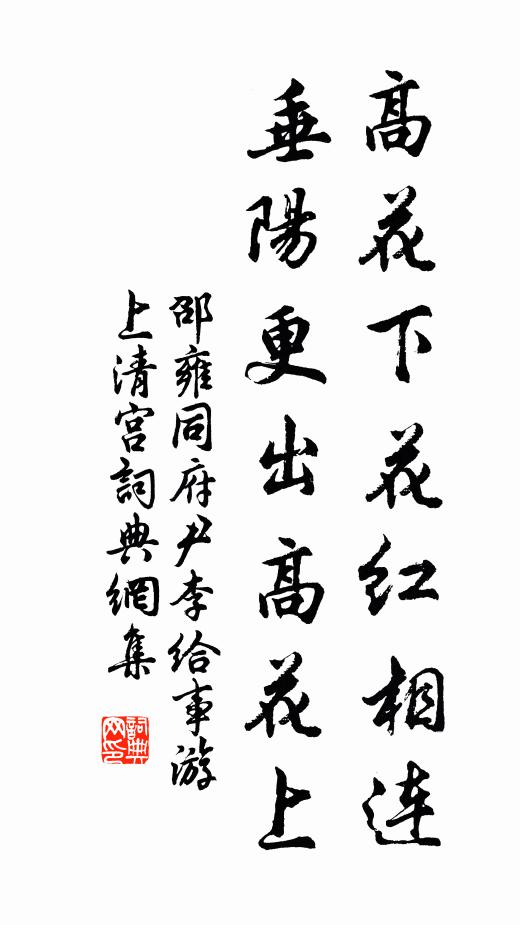 高花下花红相连
垂陽更出高花上
邵雍同府尹李给事游
上清宫詞典網集
詞典網印